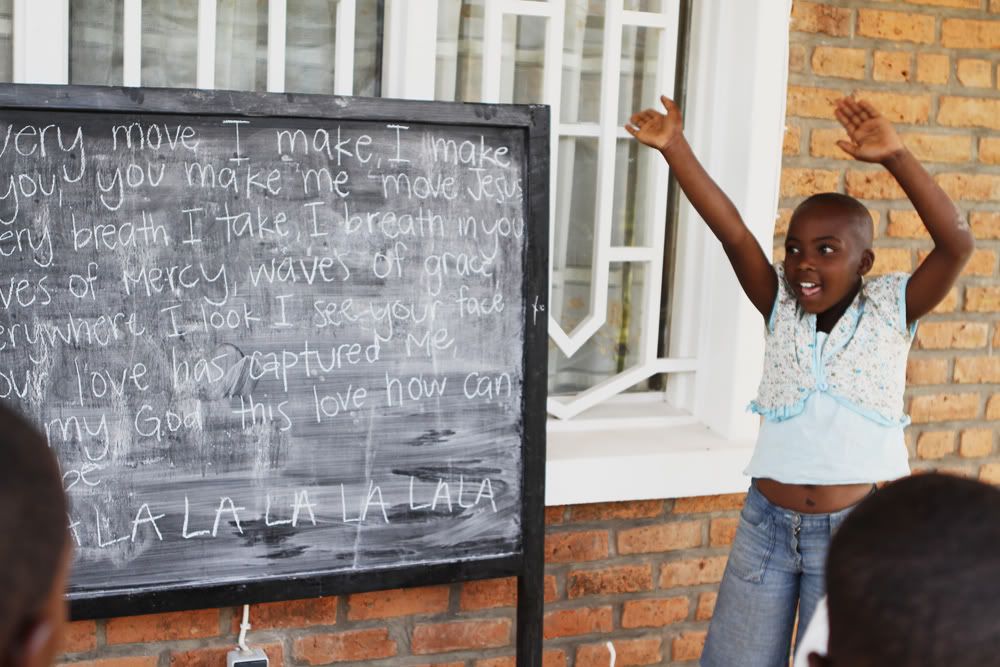 very move I make, I make
you, you make me move Jesus
very breath I take, I breath in you
ves of Mercy, waves of grace
erywhere I look I see your face
our love has captured Me,
my God this love how can
be
LA LA LA LA LALA